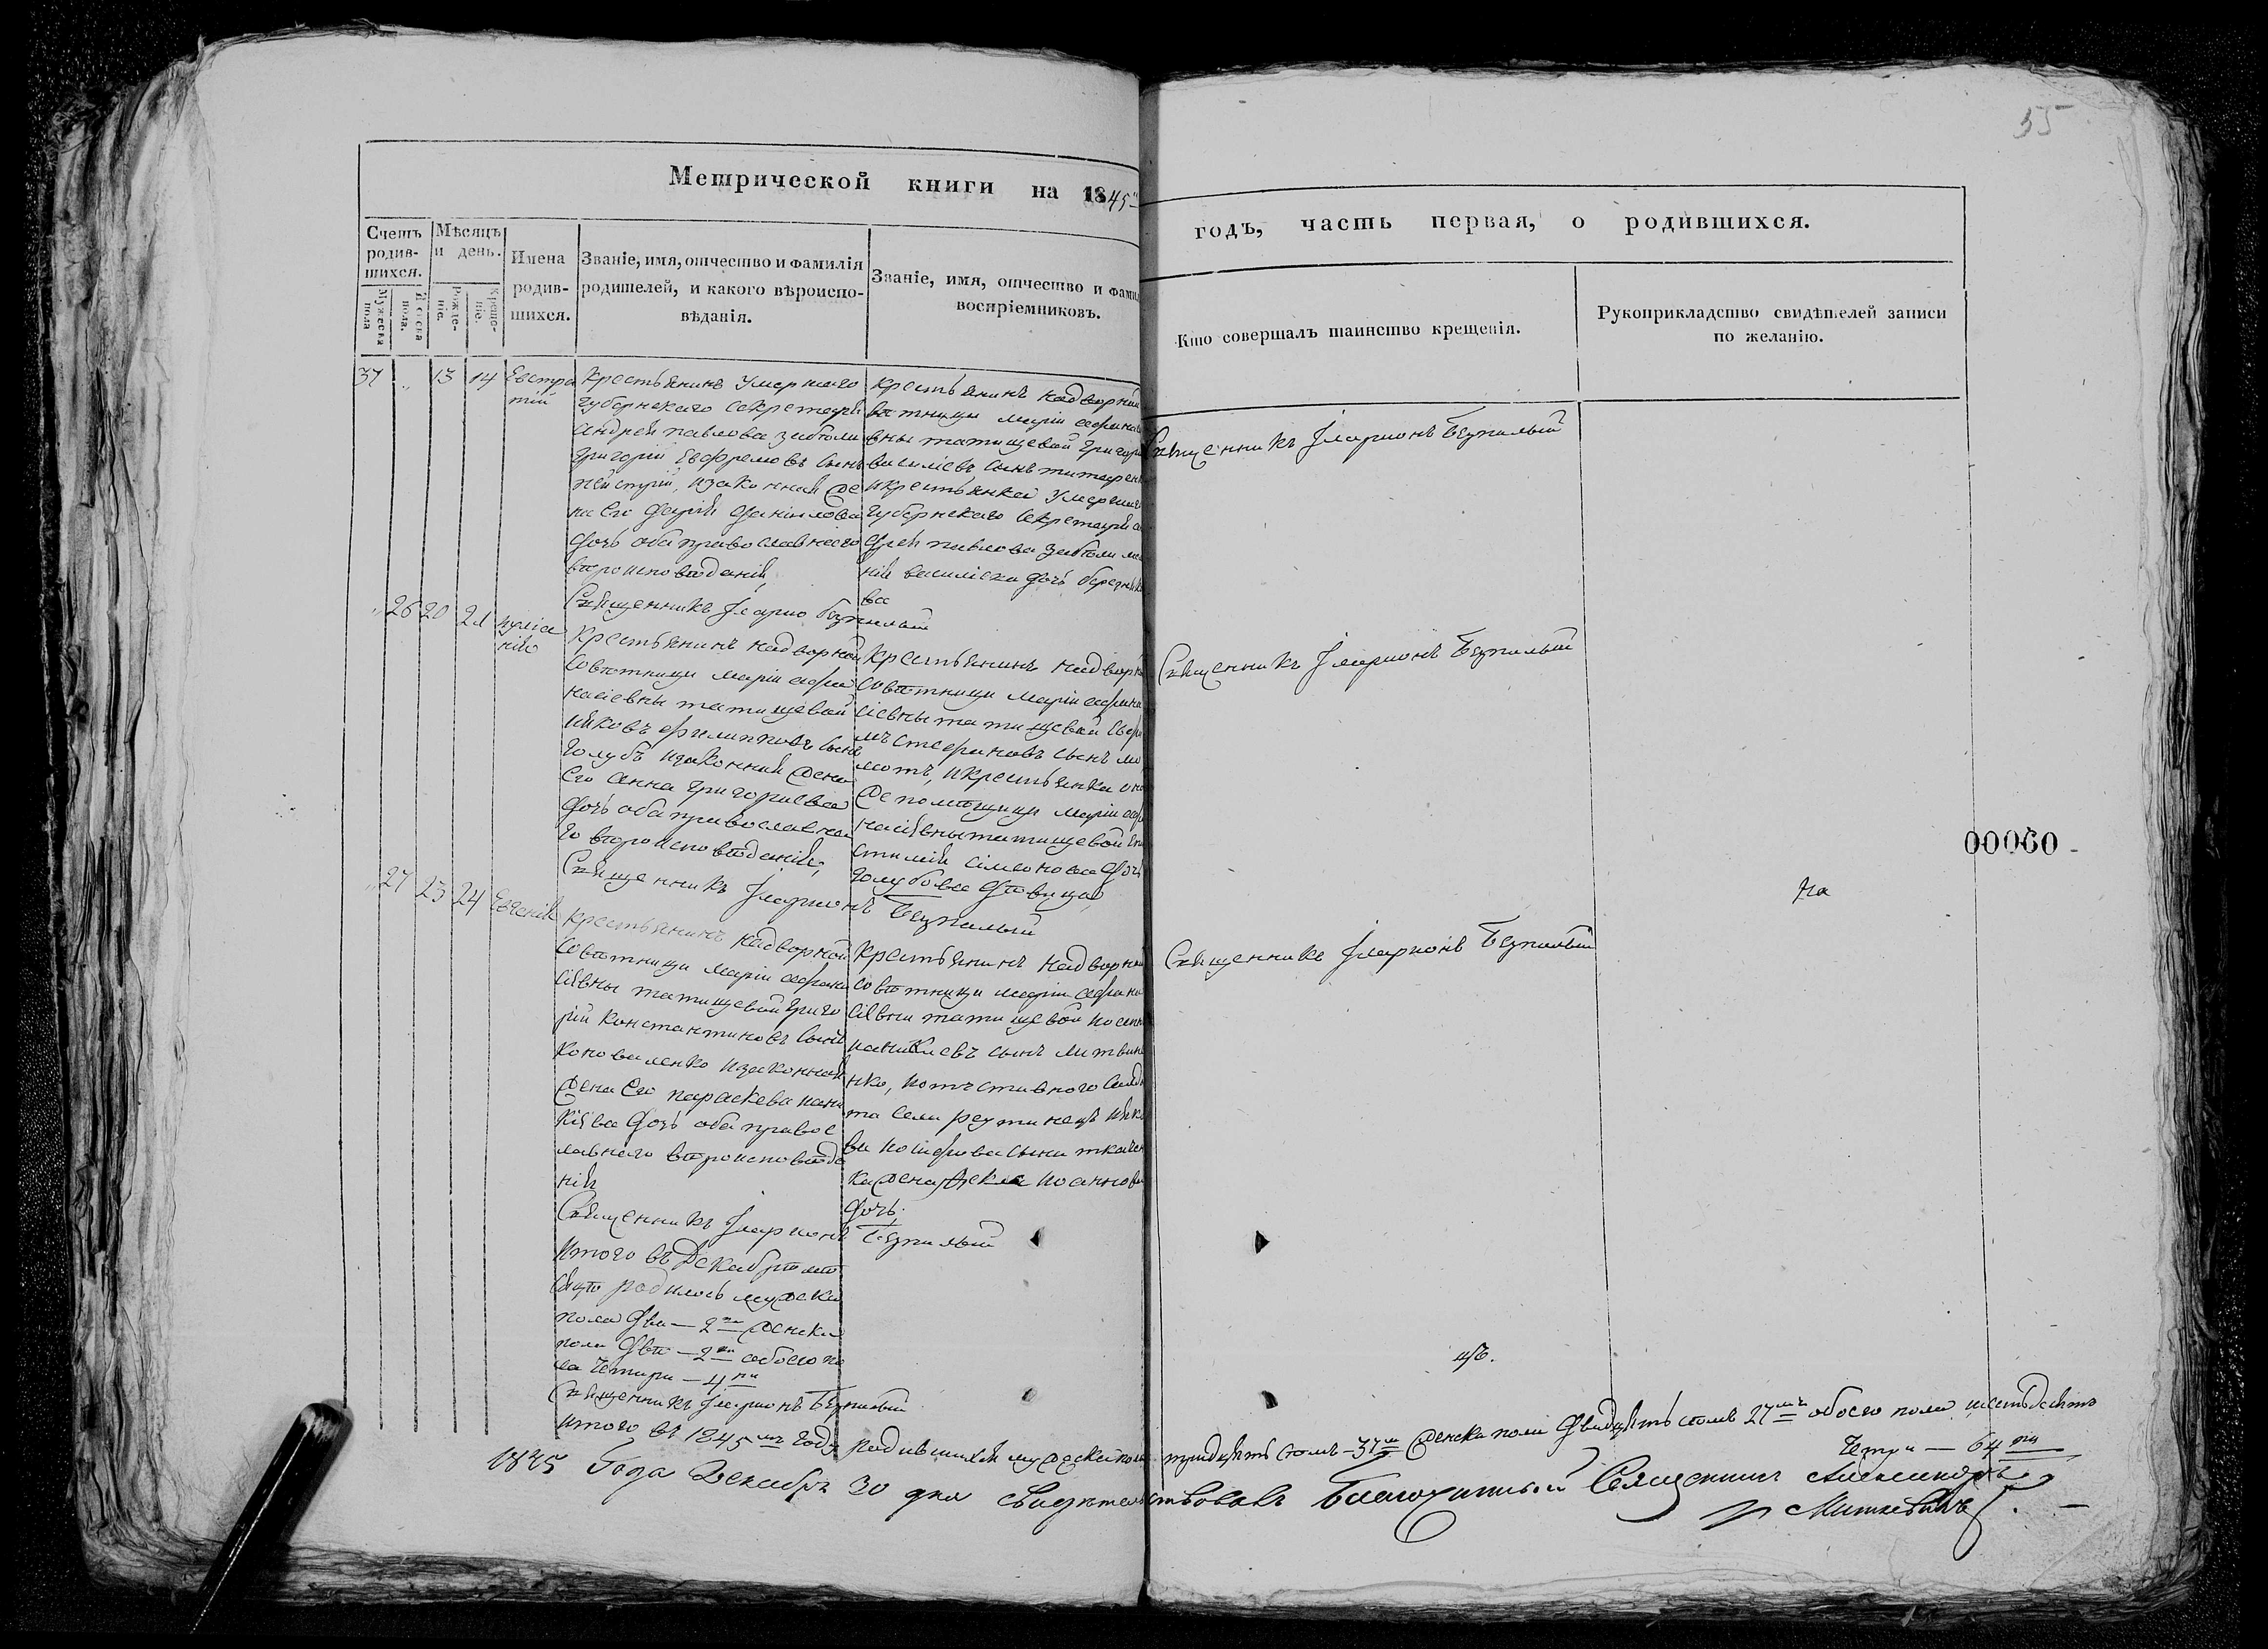 55
Метрической книги на 1845
годъ, часть первая, о родившихся.
Счетъ родив-шихся.
Мужеска пола
Женска пола.
Мѣсяцъ и день.
Рожде-ніе.
Креще-ніе.
Имена родив-шихся.
Званіе, имя, отчество и фамилія родителей, и какого вѣроиспо-вѣданія.
Званіе, имя, отчество и фами
воспріемниковъ.
Кто совершалъ таинство крещенія.
Рукоприкладство свидѣтелей записи по желанію.
37 „ 13 14 Евстра
тій
крестьянинъ умершаго
губернскаго секретаря
андрея павлова забѣли
григорій Евфремовъ сынъ
изаконная же
на его
дочь оба православнаго
вѣроисповѣданія
Священникъ Іларіо Безпалый
крестьянинъ надворной
вѣтницы маріи афанас
вны татищевой григорій
василіевъ сынъ
и крестьянка умершаго
губернскаго секретаря ан
дрея павлова забѣли
василіева дочь
ва
Священникъ Іларіонъ Безпалый
„ 26 20 21 Іуліа
нія
крестьянинъ надворной
совѣтницы маріи афа
насіевны татищевой
іяковъ филипповъ сынъ
голубъ изаконная жена
его анна григориева
дочь оба православна
го вѣроисповѣданія;
Священникъ Іларіонъ Безпалый
крестьянинъ надворно
совѣтницы маріи афана
сіевны татищевой
стефановъ сынъ
и крестьянка оно
же помѣщицы маріи афа
насіевны татищевой
сімеонова дочь
голубова дѣвица
Священникъ Іларіонъ Безпалый
„ 27 23 24 Евгенія
крестьянинъ надворной
совѣтницы маріи афана
сіевны татищевой григо
рій константиновъ сынъ
коноваленко изаконная
жена его параскева
дочь оба правос
лавнаго вѣроисповѣда
нія
Священникъ Іларіонъ Безпалый
крестьянинъ надворной
совѣтницы маріи афана
сіевны татищевой
сынъ литвине
нко,
та села реутинецъ іяко
ва іосифова сына ткачен
ка жена Ѳекла іоаннова
дочь.
Священникъ Іларіонъ Безпалый
на
Итого въ Декабрѣ мѣ
сяцѣ родилось мужеска
пола два — 2 женска
пола двѣ — 2 а обоего по
ла четыри — 4
Священникъ Іларіонъ Безпалый
итого въ 1845мъ году родившихся мужеска пола тридцять семъ — 37 женска пола двадцять семъ 27 обоего пола шестьдесятъ
четыри — 64
1845 Года Декабря 30 дня свидѣтельствовалъ Благочинный Священникъ Александръ
Миткевичъ.
00060